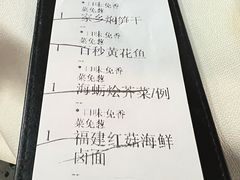 *口味:免香
菜免葱
1 家乡焖笋干
*口味:免香
菜免葱
1 百秒黄花鱼
*口味:免香
菜免葱
1 海蛎烩芥菜/例
*口味:免香
菜免葱
1 福建红菇海鲜
卤面